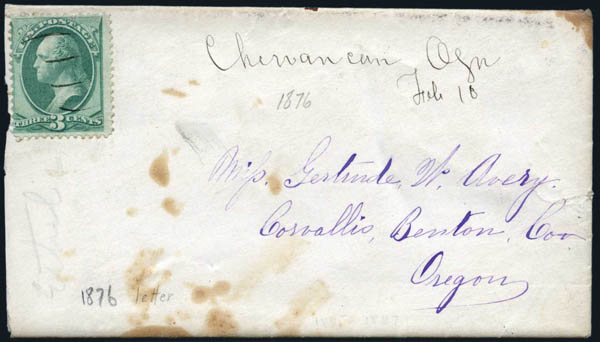 U.S. POSTAGE
THREE 3 CENTS
Chervancan Ogn
Feb 10
1876
Miss. Gertrude. W. Avery.
Corvallis, Benton, Co
Oregon
1876 letter